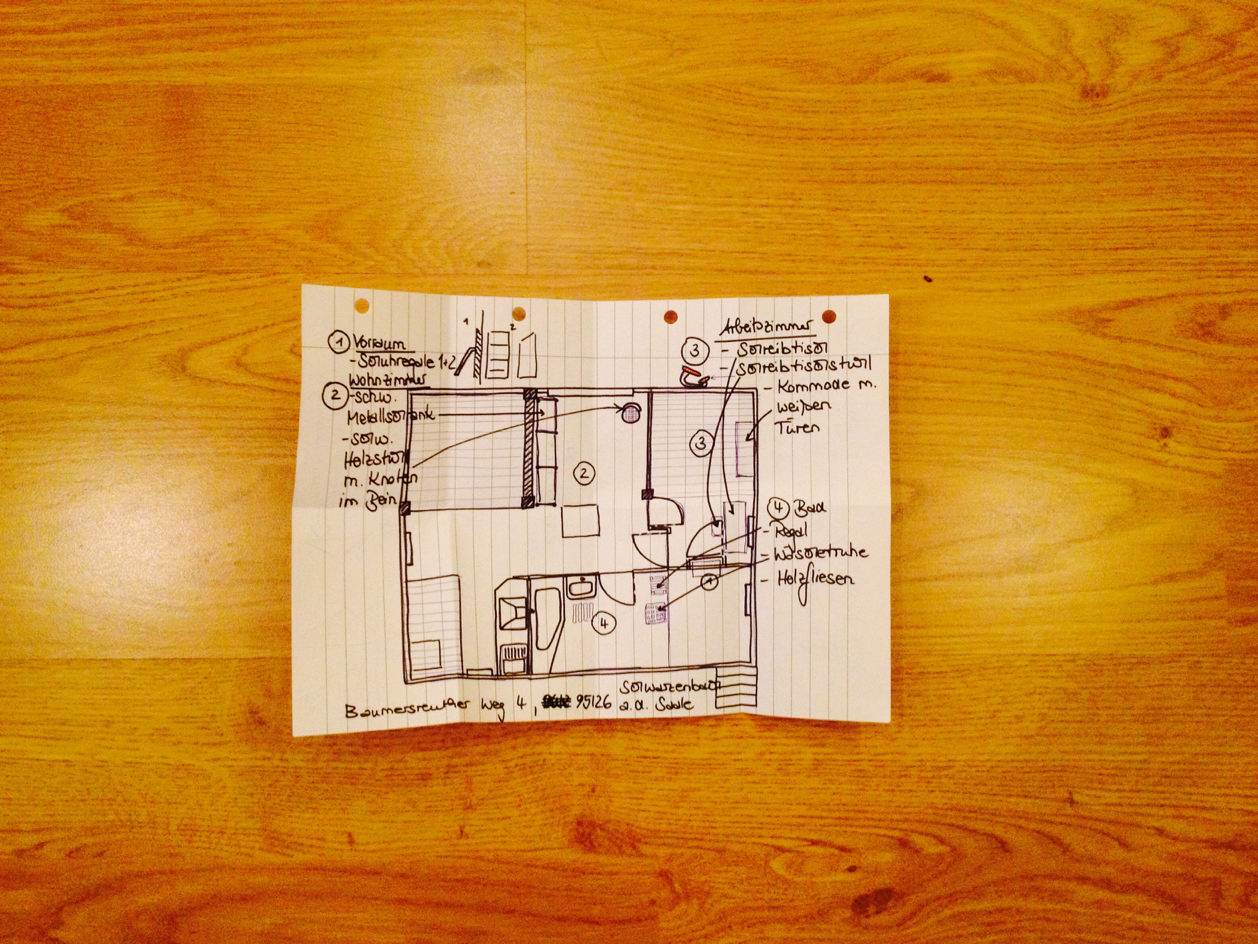 1 2
① Vorraum
- Schuhregale 1+2
Wohnzimmer
② - schw.
Metallschrank
- schw.
Holzstuhl
m. Knoten
im Bein
Arbeitszimmer
③ - Schreibtisch
- Schreibtischstuhl
- Kommode m.
weißen
Türen
③
②
④ Bad
- Regal
- Wäschetruhe
- Holzfliesen
①
④
Baumersreuther Weg 4, 95126 Schwarzenbach
a.d. Saale